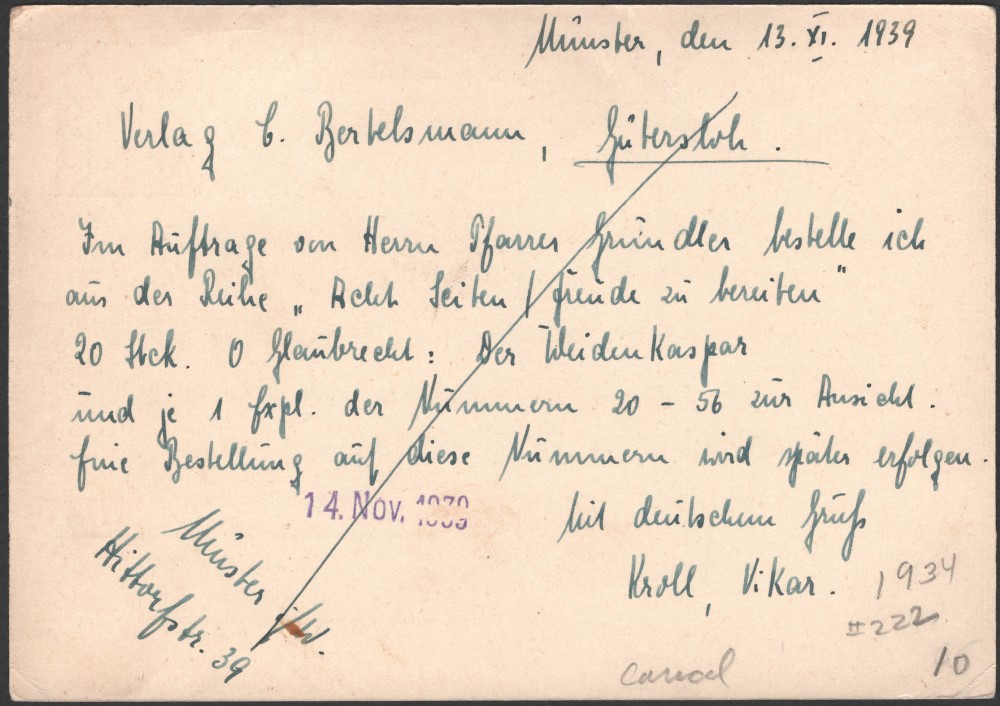 Münster, den 13. XI. 1939
Verlag C. Bertelsmann, Gütersloh.
Im Auftrage von Herrn Pfarrer Gründler bestelle ich
aus der Reihe „Acht Seiten / Freude zu bereiten"
20 Stck. O Glaubrecht: Der Weidenkaspar
und je 1 Expl. der Nummern 20 - 56 zur Ansicht.
Eine Bestellung auf diese Nummern wird später erfolgen.
14. Nov. 1939
Mit deutschem Gruß
Kroll, Vikar.
Münster i/W.
Hittorfstr. 39
1934
#222
10